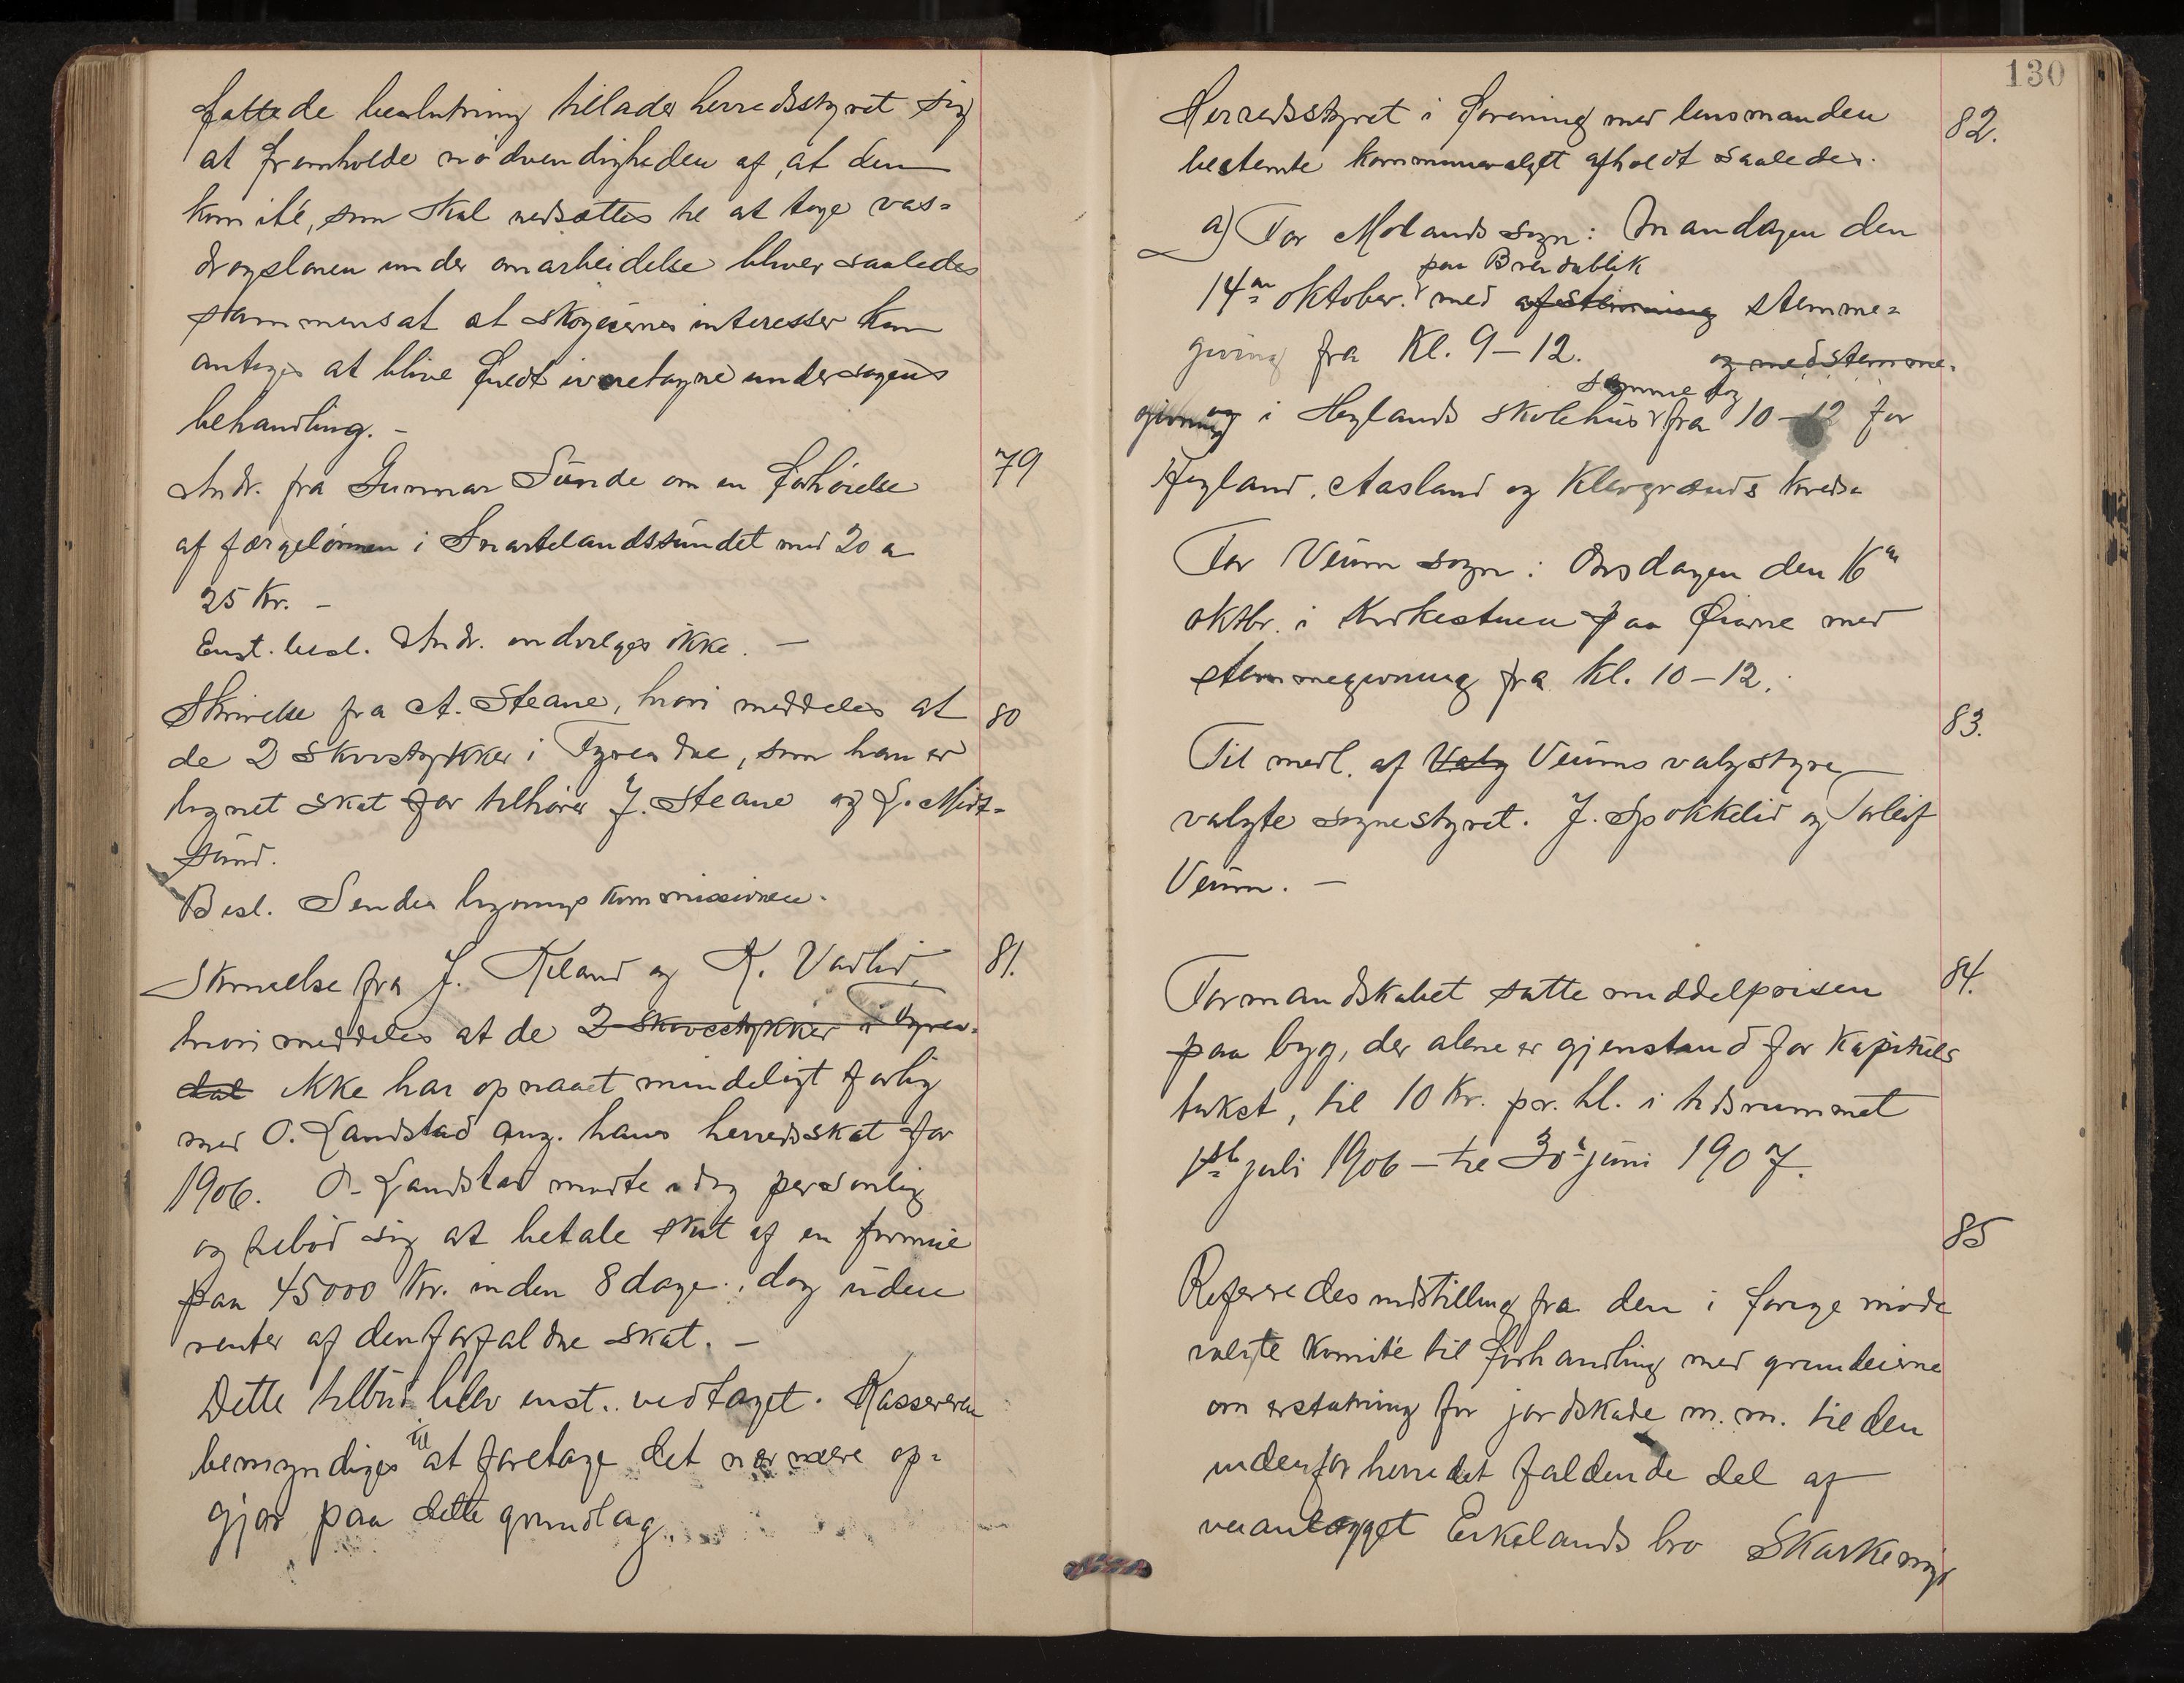 fattede beslutning tillader herredsstyret sig
at fremholde nødvendigheden af, at den
komité, som skal nedsættes til at tage vas-
dragsloven under omarbeidelse bliver saaledes
sammensat at skogeiernes interesser kan
antages at blive fuldt ivaretagne under sagens
behandling. -
79
Andr. fra Gunnar Sunde om en forhøielse
af færgelønnen i Snartelandssundet med 20 a
25 Kr. -
Enst. besl. Andr. indvilges ikke. -
80
Skrivelse fra A. Steane, hvori meddeles at
de 2 skovstykker i Tyrendal, som han er
lignet skat for tilhører J. Steane og L. Midt-
sund.
Besl. Sendes ligningskommissionen.
81.
Skrivelse fra J. Kiland og K. Vadlid,
hvori meddeles at de 2 skovstykker i Tyren-
dal ikke har opnaaet mindeligt forlig
med O. Landstad ang. hans herredsskat for
1906. O. Landstad mødte idag personlig
og tilbød sig at betale skat af en formue
paa 45000 Kr. inden 8 dage, dog uden
renter af den forfaldne skat. -
Dette tilbud blev enst. vedtaget. Kassereren
bemyndiges til at foretage det nærmere op-
gjør paa dette grundlag.
130
82.
Herredsstyret i forening med lensmanden
bestemte kommunevalget afholdt saaledes.
a) For Molands sogn: Mandagen den
paa Brendablik
14de oktober. med afstemning stemme-
givning fra Kl. 9-12. og med stemme-
samme dag
givning og i Høylands skolehus fra 10-12 for
Høyland, Aasland og Klevgrænds kreds
For Veum sogn: Onsdagen den 16de
oktbr. i Kirkestuen paa Øiane med
stemmegivning fra Kl. 10-12.
83.
Til medl. af Valg Veums valgstyre
valgte sognestyret. J. Spokkelid og Torleif
Veum. -
84.
Formandskabet satte middelprisen
paa byg, der alene er gjenstand for kapitels
takst, til 10 Kr. pr. hl. i tidsrummet
1ste juli 1906 - til 30te juni 1907.
85
Referredes indstilling fra den i forrige møde
valgte komité til forhandling med grundeierne
om erstatning for jordskade m.m. til den
indenfor herredet faldende del af
veianlægget Eikelands bro Skarkemyr